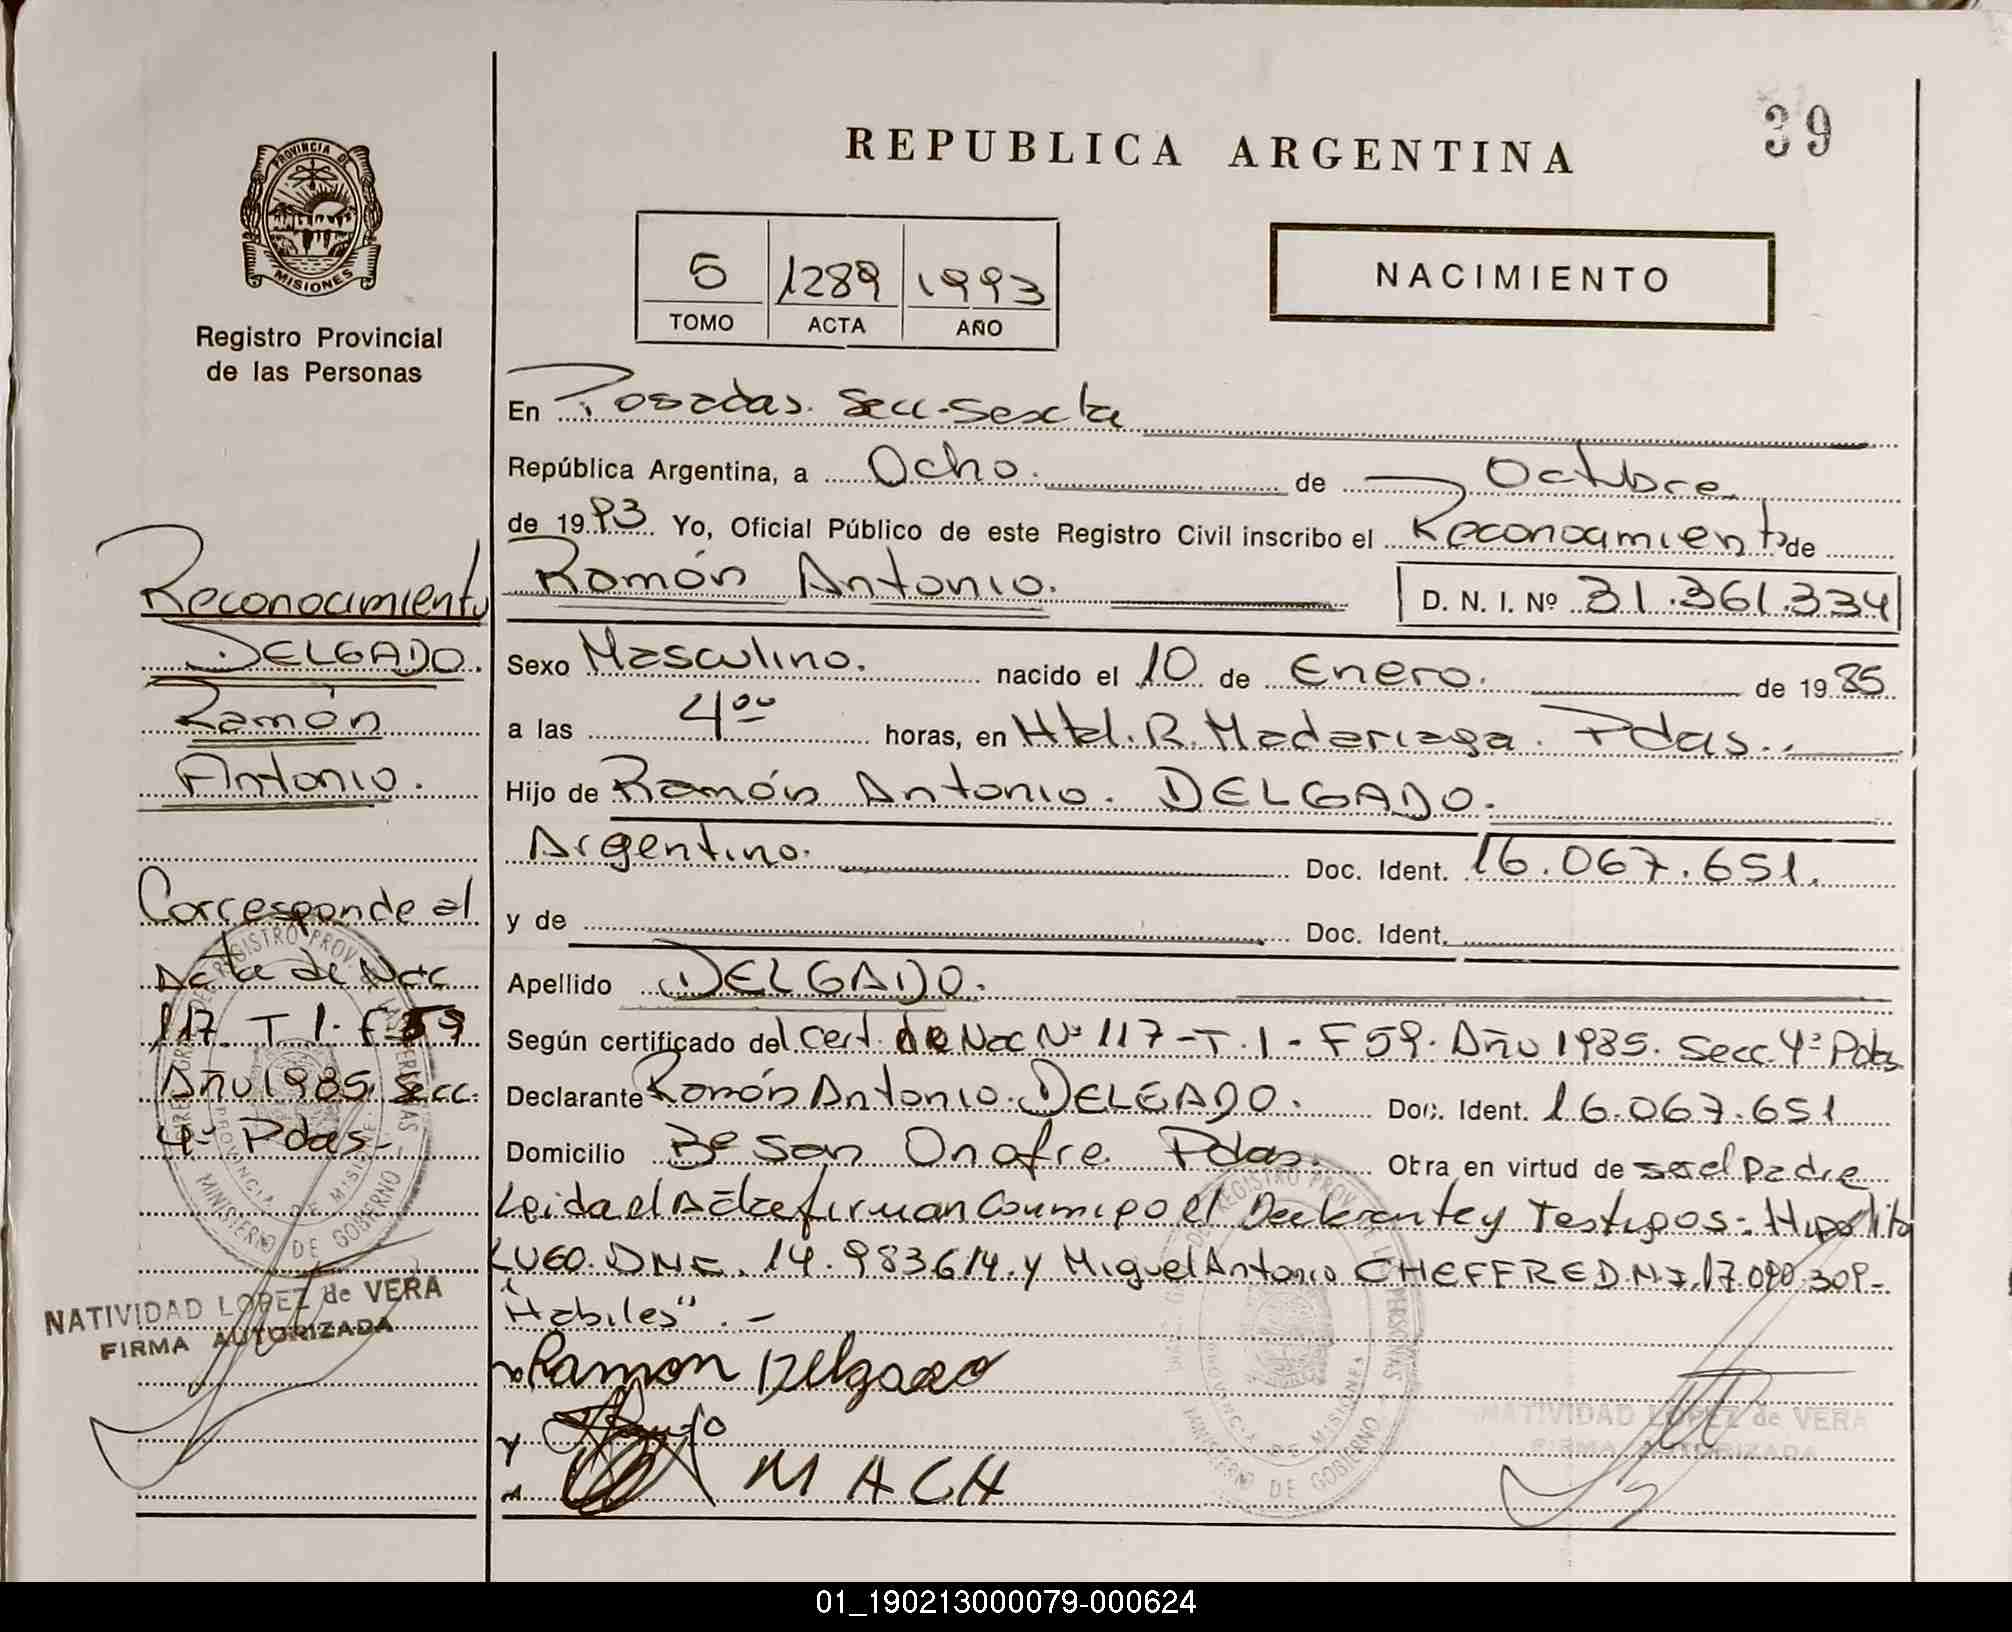 39
REPUBLICA ARGENTINA
PROVINCIA DE
MISIONES
Registro Provincial
de las Personas
5 1289 1993
TOMO ACTA AÑO
NACIMIENTO
En Posadas. Secc. Sexta
República Argentina, a Ocho. de Octubre
de 1993. Yo, Oficial Público de este Registro Civil inscribo el Reconocimiento de
Ramón Antonio. D. N. I. Nº 31.361.334
Sexo Masculino. nacido el 10 de Enero. de 1985
a las 4⁰⁰ horas, en Htal. R. Madariaga. Pdas.
Hijo de Ramón Antonio. DELGADO.
Argentino. Doc. Ident. 16.067.651.
y de Doc. Ident.
Apellido DELGADO.
Según certificado del Cert. de Nac Nº 117-T.1-F 59. Año 1985. Secc. 4ª Pdas
Declarante Ramón Antonio. DELGADO. Doc. Ident. 16.067.651
Domicilio Bº San Onofre Pdas. Obra en virtud de ser el Padre
Leida el Acta firman conmigo el Declarante y Testigos: Hipólito
LUGO. DNI. 14.983.614. y Miguel Antonio CHEFFRE DNI. 17.090.309-
"Habiles". -
Ramon Delgado
M A CH
Reconocimiento
DELGADO.
Ramón
Antonio.
Corresponde al
Acta de Nac
117. T 1. F 59
Año 1985. Secc.
4ª Pdas-
REGISTRO PROV. DE LAS PERSONAS
PROVINCIA DE MISIONES
MINISTERIO DE GOBIERNO
NATIVIDAD LOPEZ de VERA
FIRMA AUTORIZADA
REGISTRO PROV. DE LAS PERSONAS
PROVINCIA DE MISIONES
MINISTERIO DE GOBIERNO
NATIVIDAD LOPEZ de VERA
FIRMA AUTORIZADA
01_190213000079-000624